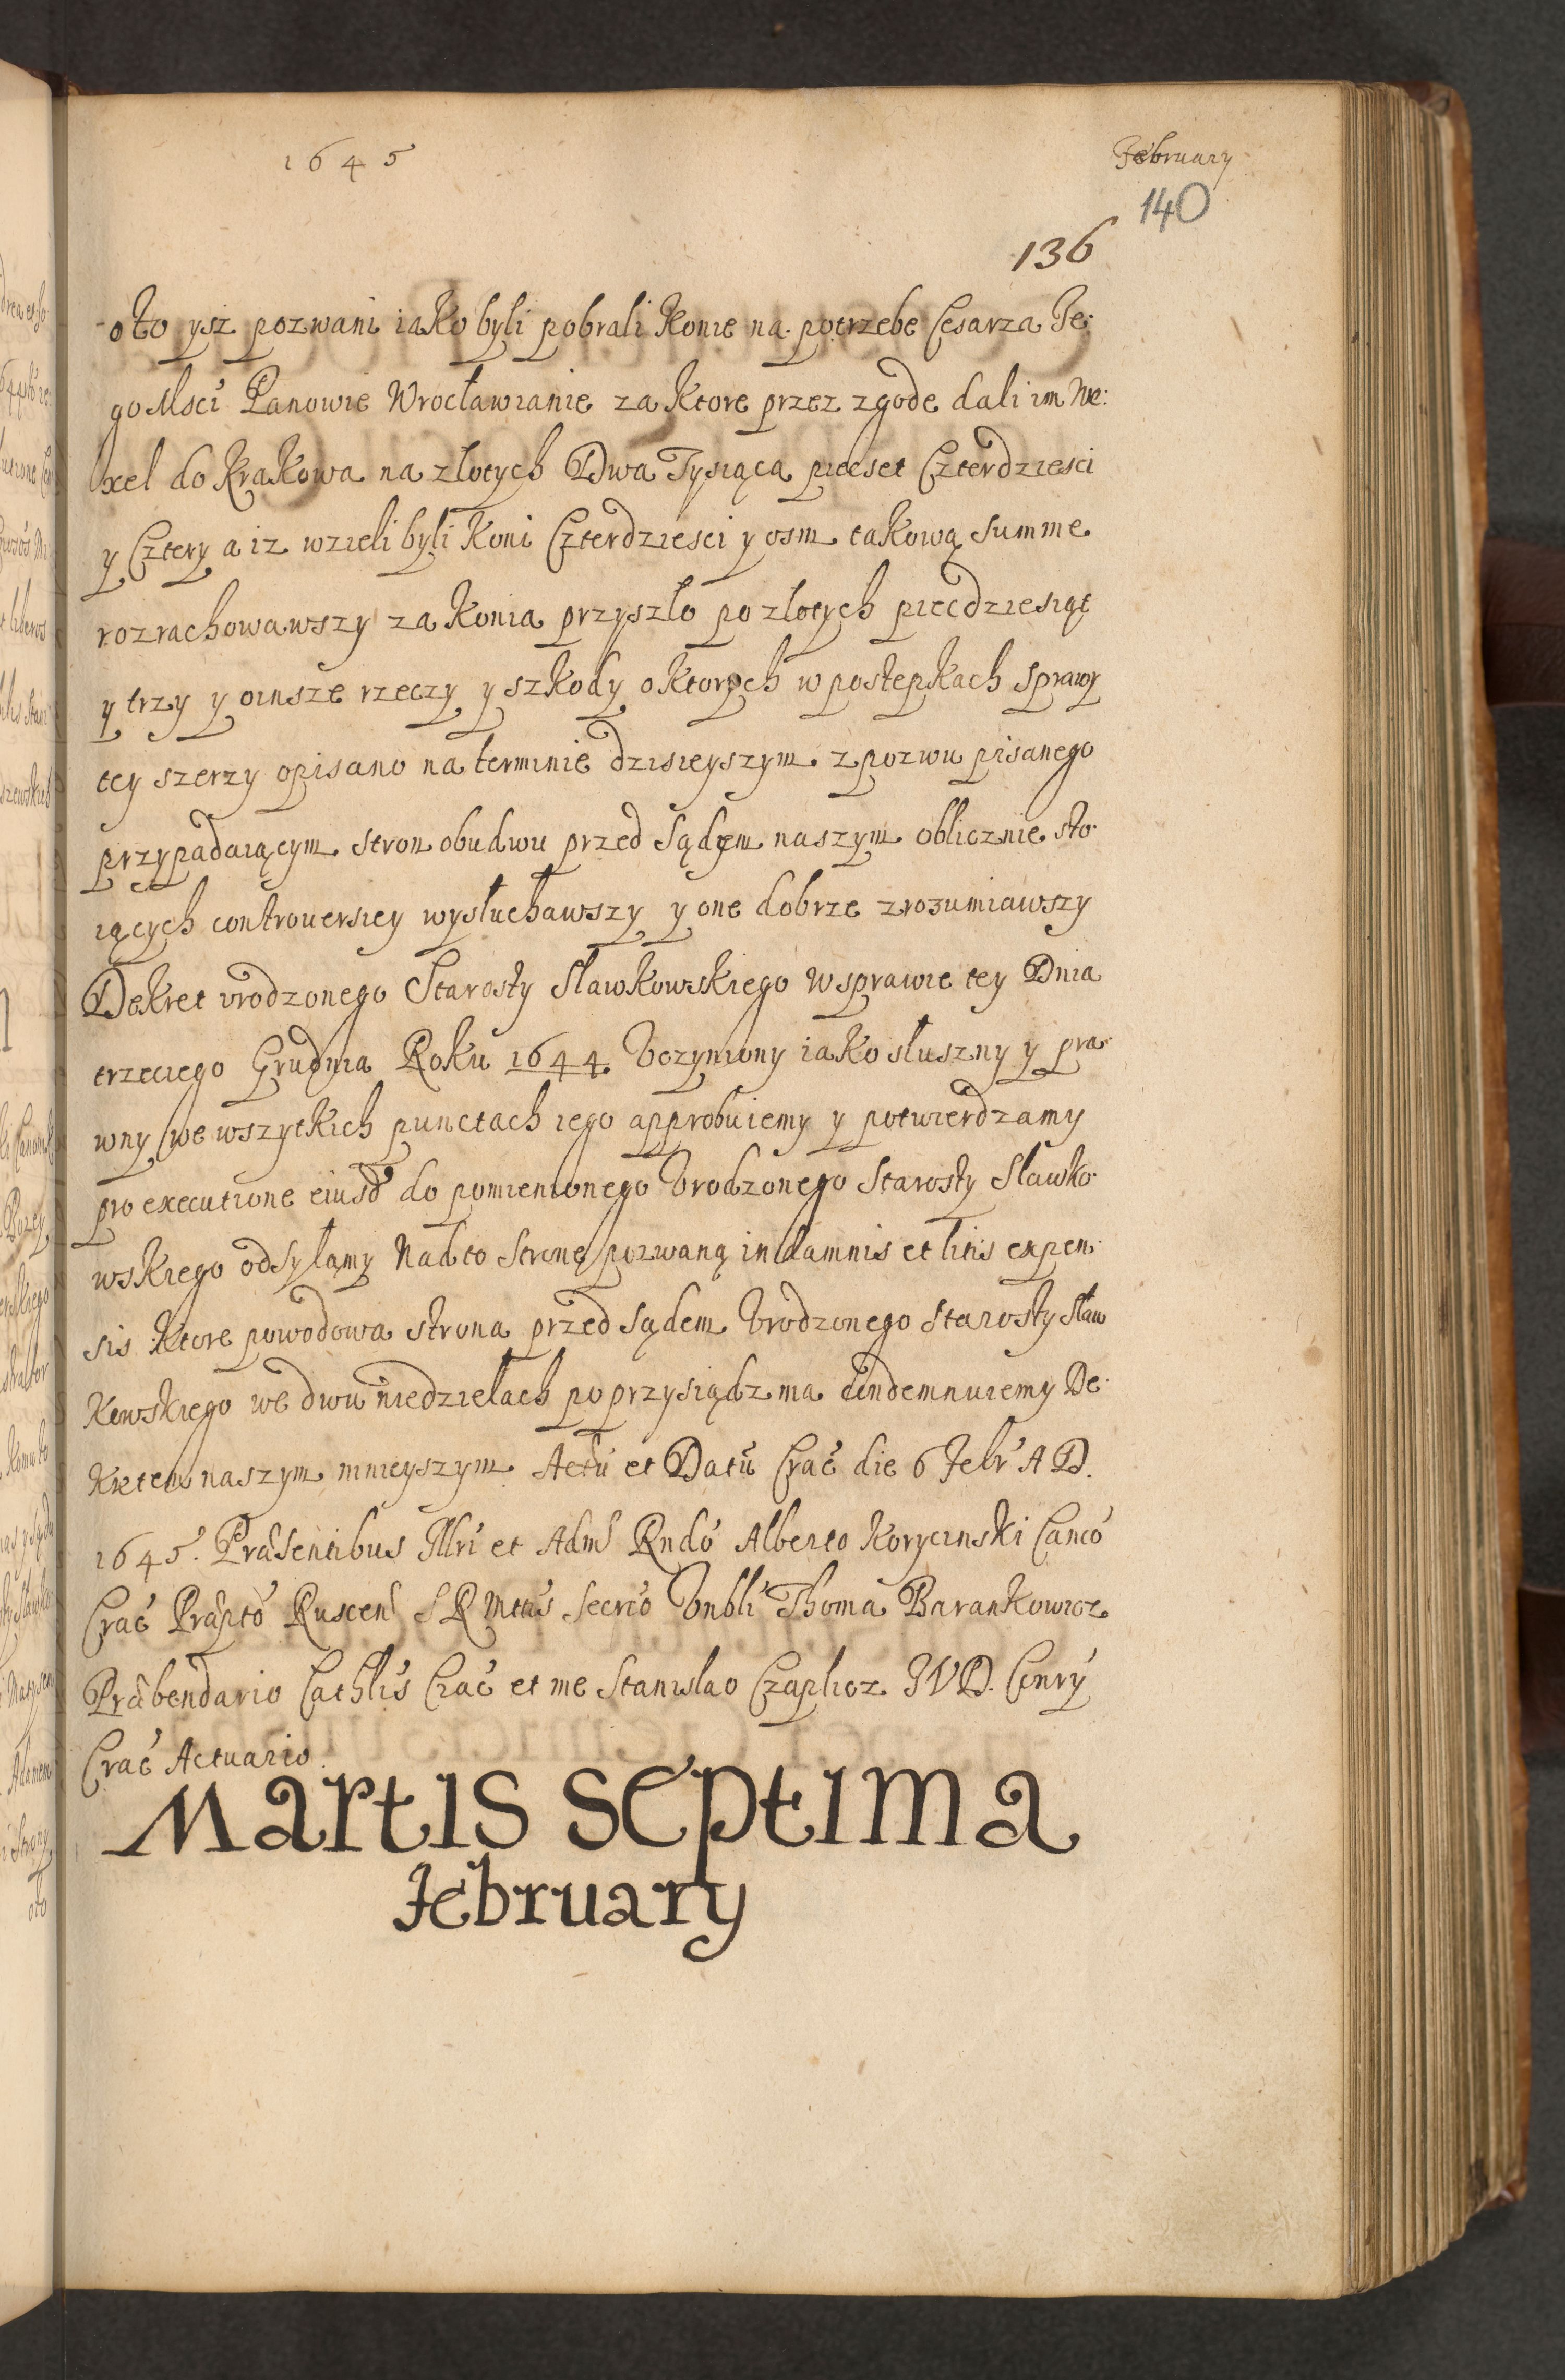 1645
February
140
136
oto ysz pozwani iako byli pobrali konie na potrzebe Cesarza Je:
go Msci Panowie Wrocławianie za ktore przez zgode dali im We:
xel do Krakowa na złotych Dwa Tysiąca piecset Czterdziesci
y Cztery a iz wzieli byli koni Czterdziesci y osm takową summe
rozrachowawszy za konia przyszlo po złotych piecdziesiąt
y trzy y oinsze rzeczy y szkody o ktorych w postepkach sprawy
tey szerzy opisano na terminie dzisieyszym z pozwu pisanego
przypadaiącym stron obudwu przed sądem naszym oblicznie sto
iących controuersiey wysłuchawszy y one dobrze zrozumiawszy
Dekret vrodzonego Starosty Sławkowskiego w sprawie tey Dnia
trzeciego Grudnia Roku 1644 Vczyniony iako słuszny y pra
wny we wszytkich punctach iego approbuiemy y potwierdzamy
pro executione eiusd do pomienionego Vrodzonego Starosty Sławko
wskiego odsyłamy Nad to strone pozwaną in damnis et litis expen
sis ktore powodowa strona przed sądem Vrodzonego Starosty Sław
kowskiego we dwu niedzielach poprzysiądz ma condemnuiemy De
kretem naszym mnieyszym Actū et Datū Crac̃ die 6 Febr̃ A D.
1645. Præsentibus Illri et Adm̃ Rndo Alberto Korycinski Canco
Crac̃ Præpto Ruscen̄ S R Mttis Secrio Vnbli Thoma Barankowicz
Præbendario Cathlis Crac̃ et me Stanislao Czaplicz IVD. Conry
Crac̃ Actuario
Martis septima
February